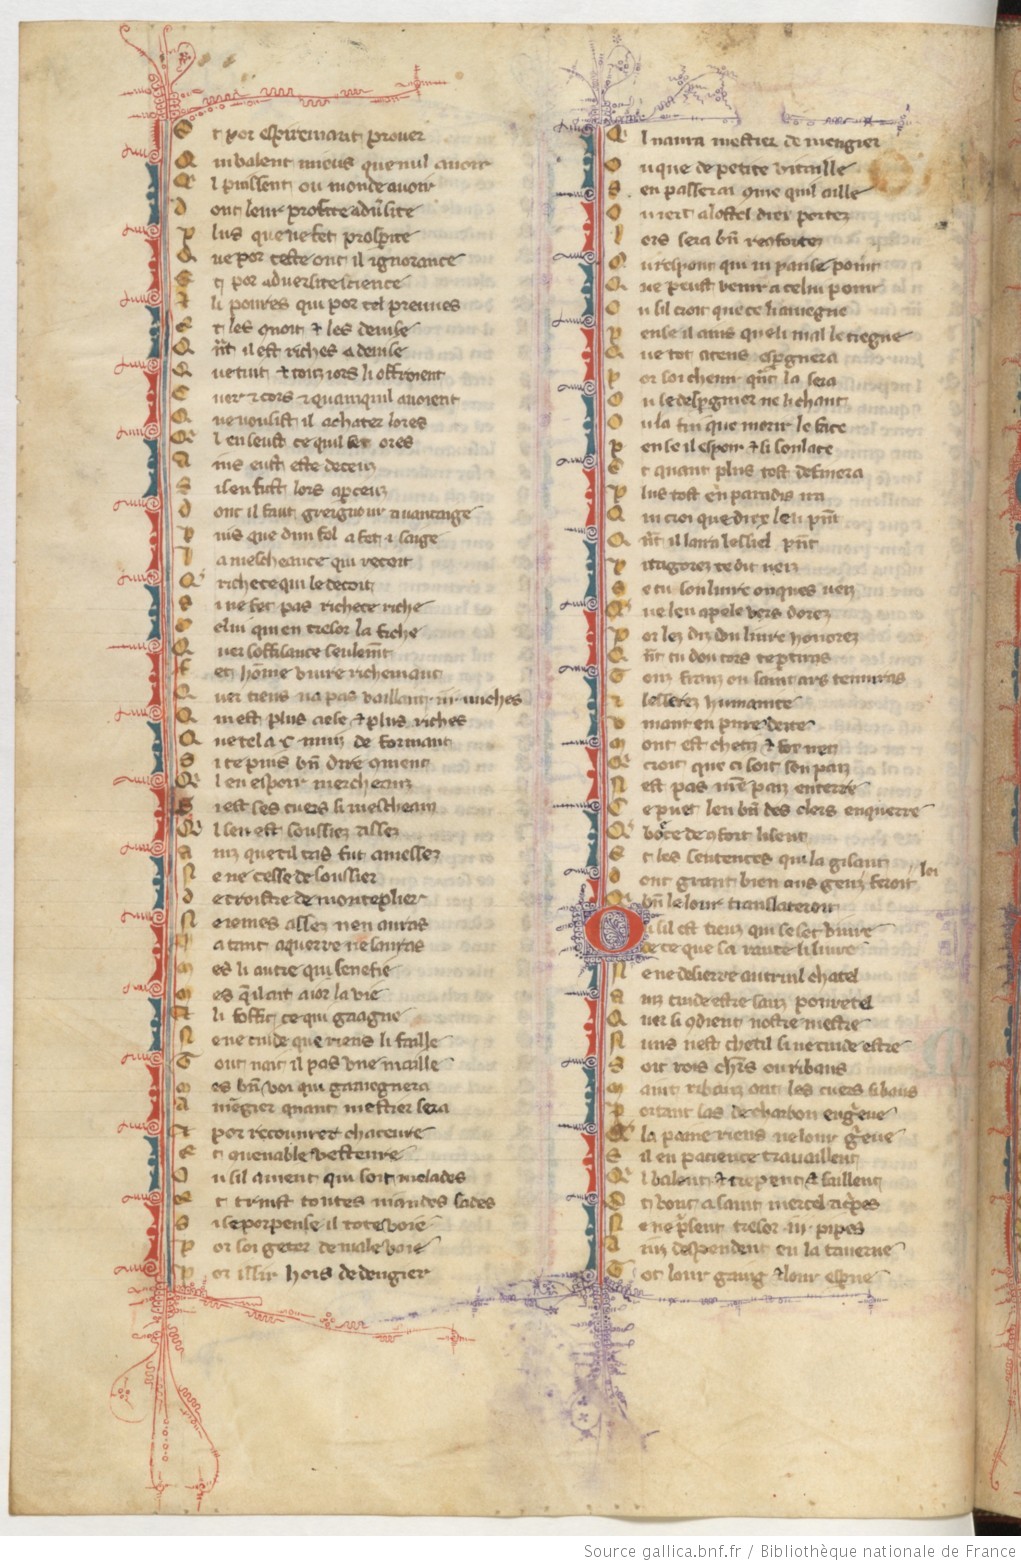 E t por espirement prover
Q ui valent mieus que nul avoir
Q il puissent ou monde avoir
d ont leur profite adversite
p lus que ne fet prosperite
Q ue por ceste ont il ignorance
E t por adversite science
E li povres qui por tel preuves
Q ue tuit et touz jors li offroient
C uer et cors et quanquil avoient
Q ue vousist il achater lores
Q il en seust ce quil set ores
A ins eust este deceuz
S il en fust lors aperceuz
d ont il faut greigneur avantaige
p uis que dun fol a fet .i. saige
l a mescheance qui recoit
Q richece qui le decoit
S i ne fet pas richece riche
C elui qui en tresor la fiche
Q uer soffisance seulement
f et home vivre richement
Q uer tieus na pas vaillant .ii. miches
Q ui est plus aese et plus riches
Q ue tel a .c. muiz de forment
S i te puis bn dire coment
Q il en espoir marcheanz
S i est ses cuers si mescheanz
Q il sen est soussiez assez
A inz que cil tas fut amassez
N e ne cesse de soussier
d e croistre de monteplier
N e james assez nen auras
J a tant aquerre ne sauras
m es li autre qui se ne fie
m es quil ait a jor la vie
E li soffit ce quil gaagne
N e ne cuide que riens li faille
T out nait il pas une maille
m es bn voi qui gaaignera
A mengier quant mestier sera
E t por recouvrer chauceure
E t quenable vesteure
O u sil avient qui soit malades
E t truist toutes viandes fades
S i se porpense il tote voie
p or soi geter de male voie
p or issir hors de dengier
Q il naura mestier de mengier
O u que de petite vitaille
S en passera coment quil aille
O u iert a lostel dieu portez
l ors sera bn reconfortez
O u respont qui ni panse point
Q ue peust venir a celui point
O u sil croit que ce li aviegne
p ense il ains que li mal le tiegne
Q ue tot atens espgnera
p or soi chevir qnt la sera
O u se despgnier ne li chaut
O u la fin que morir le face
p ense il espoir et li soulace
E t quant plus tost definera
p lus tost en paradis ira
Q ui croi que diex le li pnt
Q nt il laira lessil pnt
p ittagoraz te dit neiz
S e tu son livre onques veiz
Q ue len apele vers dorez
p or les diz du livre honorez
Q nt tu dou cors te ptiras
T ouz frans ou saint air ten iras
E t lesserez humanite
v ivant en pure deite
m out est chetis et fox nez
Q croit que ci soit son pais
N est pas nre pais en terre
C e puet len bn des clers enquerre
Q boece de confort lisent
E t les sentences qui la gisent
d ont grant bien aus genz lais feroit
Q bn le lour translateroit
O u sil est tieus qui se set vivre
de ce que sa rente li livre
N e ne desierre autrui chatel
A inz cuide estre sanz povrete
Q uer si com dient nostre mestre
N uns nest chetis si ne cuide estre
S oit rois chrs ou ribaus
m aint ribauz ont les cuers si baus
p ortant sas de charbon en greve
Q la paine riens ne lour greve
S il en pacience travaillent
Q il balent et trepent et saillent
v ont a saint marcel as tripes
N e ne prisent tresor .iii. pipes
A inz despendent en la taverne
T ot lour gaaig et lour espne